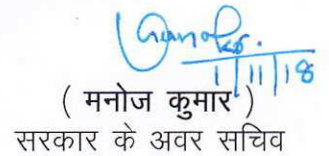 1/11/18
( मनोज कुमार )
सरकार के अवर सचिव